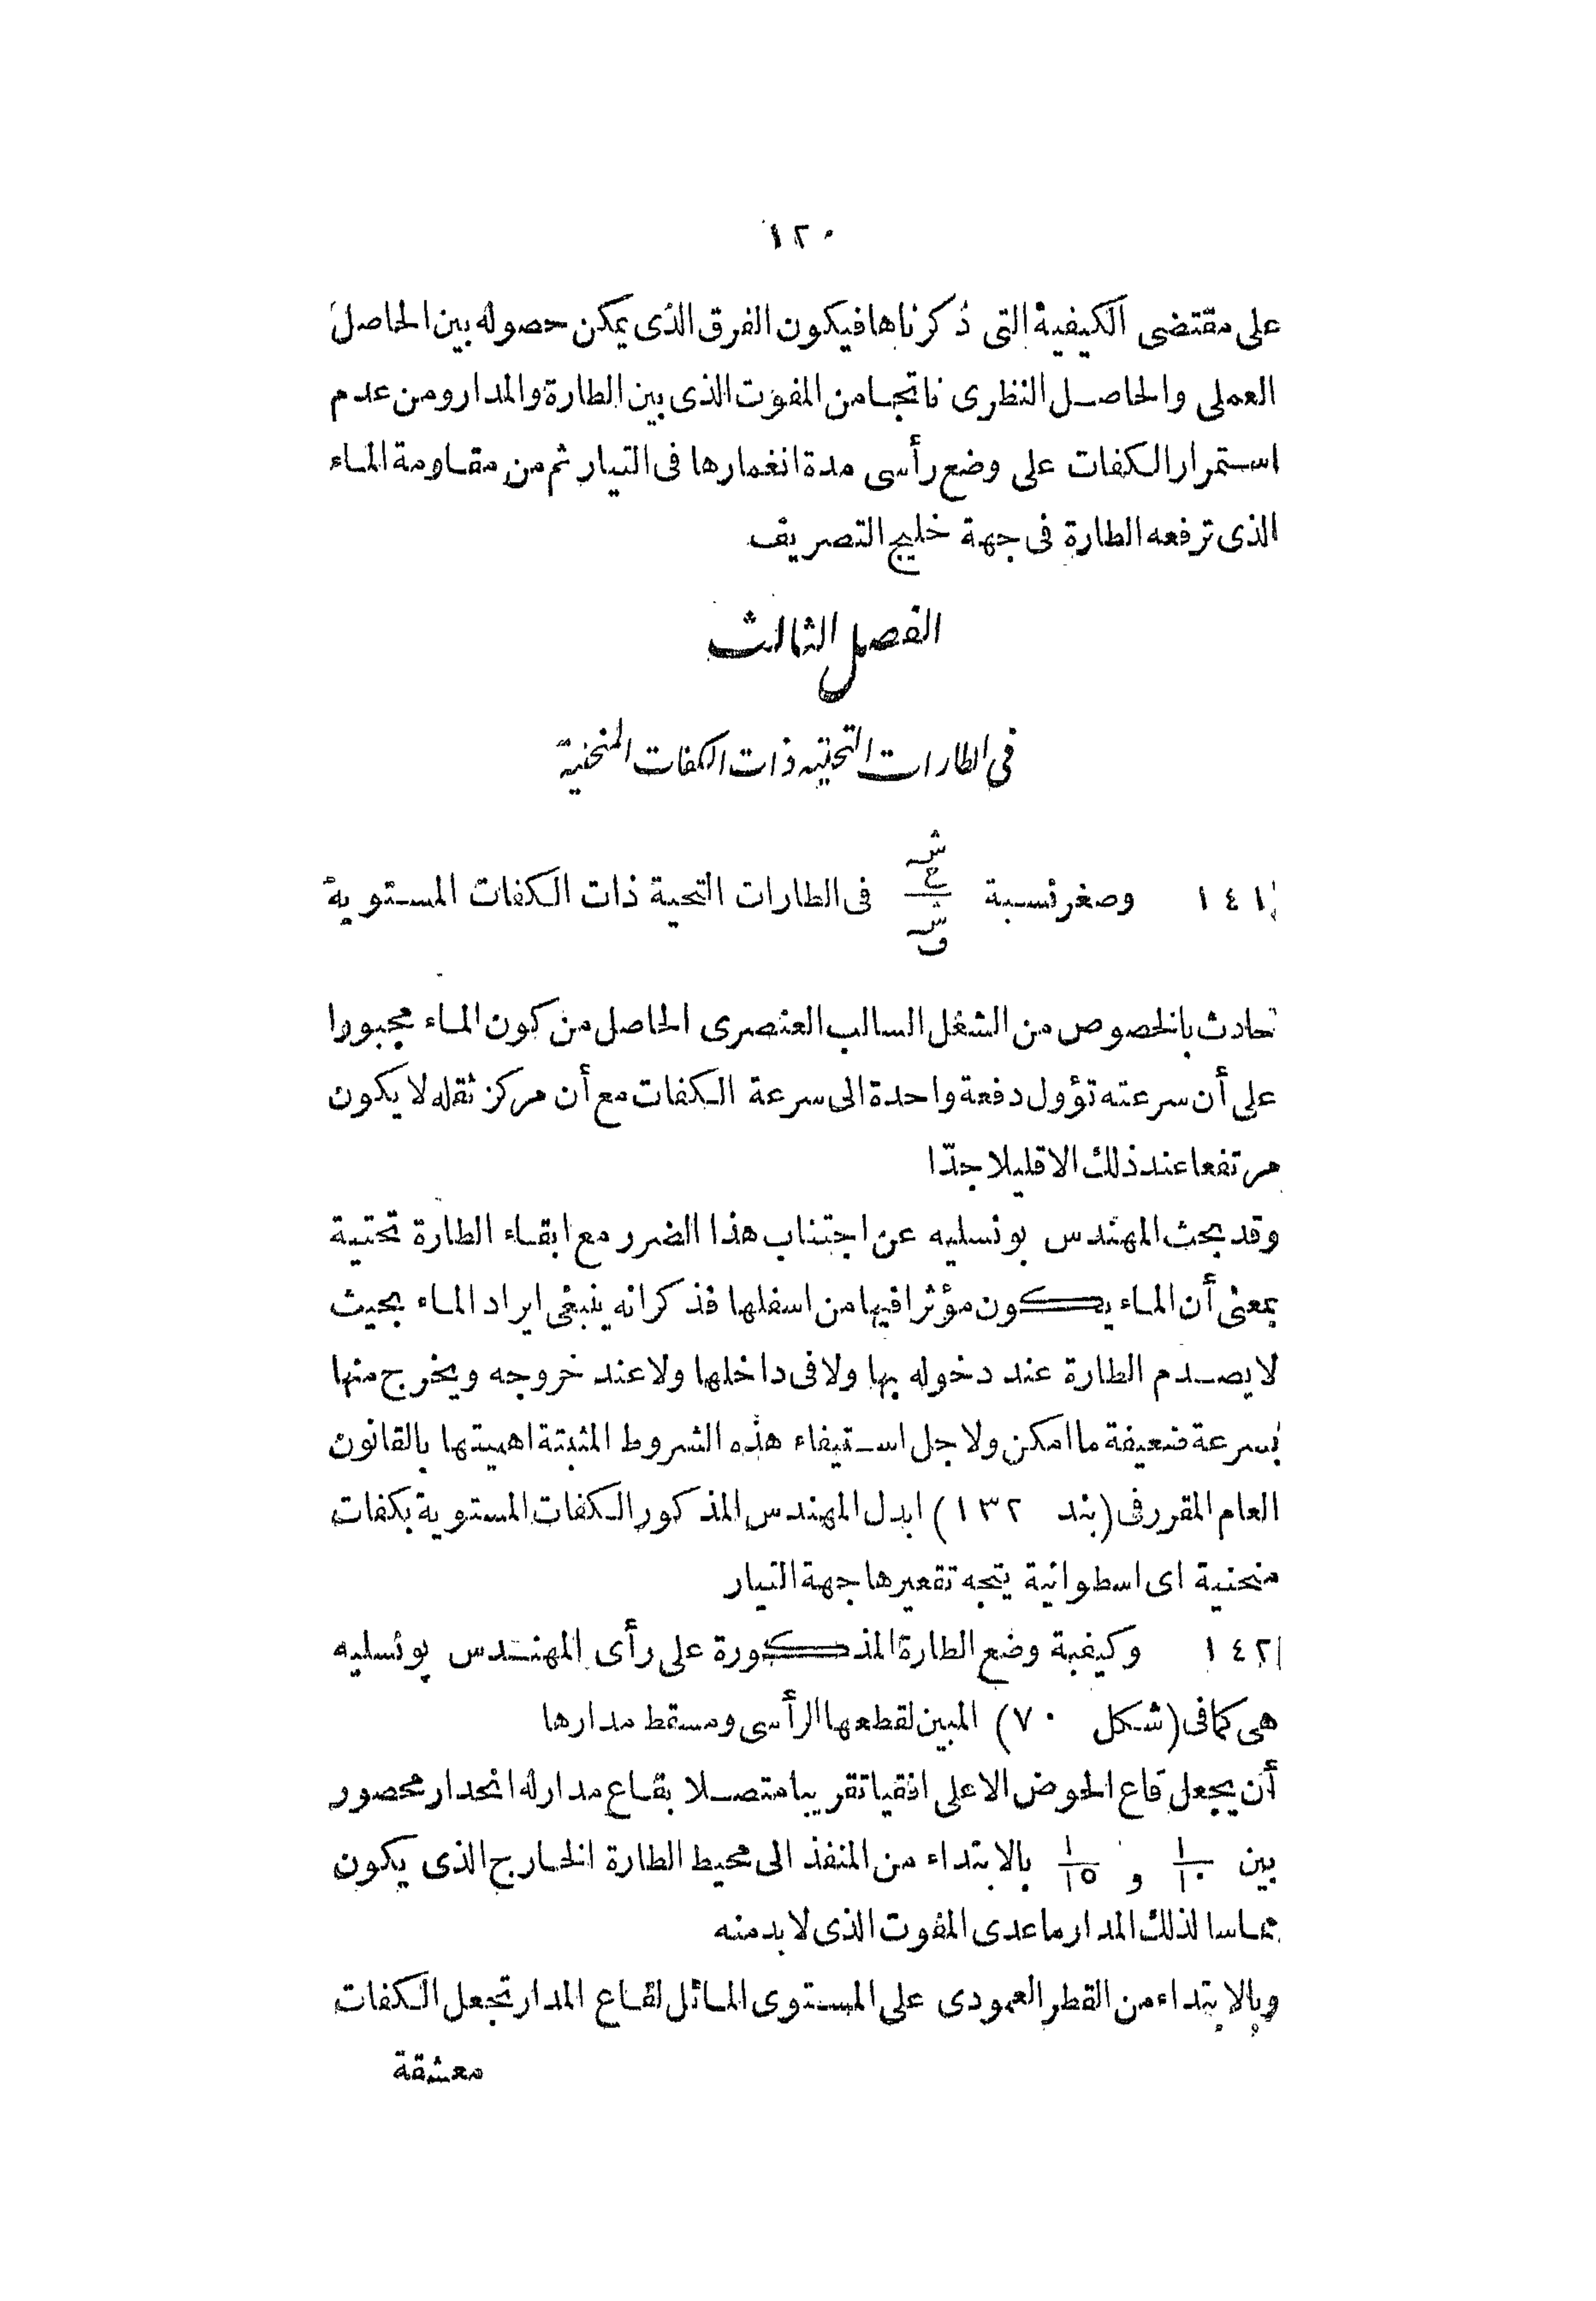 ١٢٠
على مقتضى الكيفية التى ذكرناها فيكون الفرق الذى يمكن حصوله بين الحاصل
العملى والحاصل النظرى ناتجا من المفوت الذى بين الطارة والمدار ومن عدم
استمرار الكفات على وضع رأسى مدة انغمارها فى التيار ثم من مقاومة الماء
الذى ترفعه الطارة فى جهة خليج التصريف
الفصل الثالث
فى الطارات التحتيه ذات الكفات المنحنية
١٤١ وصغر نسبة فى الطارات التحية ذات الكفات المستوية
حادث بالخصوص من الشغل السالب العنصرى الحاصل من كون الماء مجبورا
على أن سرعته تؤول دفعة واحدة الى سرعة الكفات مع أن مركز ثقله لا يكون
مرتفعا عند ذلك الا قليلا جدّا
وقد بحث المهندس بونسليه عن اجتناب هذا الضرر مع ابقاء الطارة تحتية
بمعنى أن الماء يكون مؤثرا فيها من اسفلها فذكر انه ينبغى ايراد الماء بحيث
لا يصدم الطارة عند دخوله بها ولا فى داخلها ولا عند خروجه ويخرج منها
بسرعة ضعيفة ما امكن ولاجل استيفاء هذه الشروط المثبتة اهميتها بالقانون
العام المقرر فى (بند ١٣٢) ابدل المهندس المذكور الكفات المستوية بكفات
منحنية اى اسطوانية يتجه تقعيرها جهة التيار
١٤٢ وكيفية وضع الطارة المذكورة على رأى المهندس بونسليه
هى كما فى (شكل ٧٠) المبين لقطعها الرأسى ومسقط مدارها
أن يجعل قاع الحوض الاعلى افقيا تقريبا متصلا بقاع مدار له انحدار محصور
بين ١/١٠ و ١/١٥ بالابتداء من المنفذ الى محيط الطارة الخارج الذى يكون
مماسا لذلك المدار ما عدى المفوت الذى لابد منه
وبالابتداء من القطر العمودى على المستوى المائل لقاع المدار تجعل الكفات
معشقة